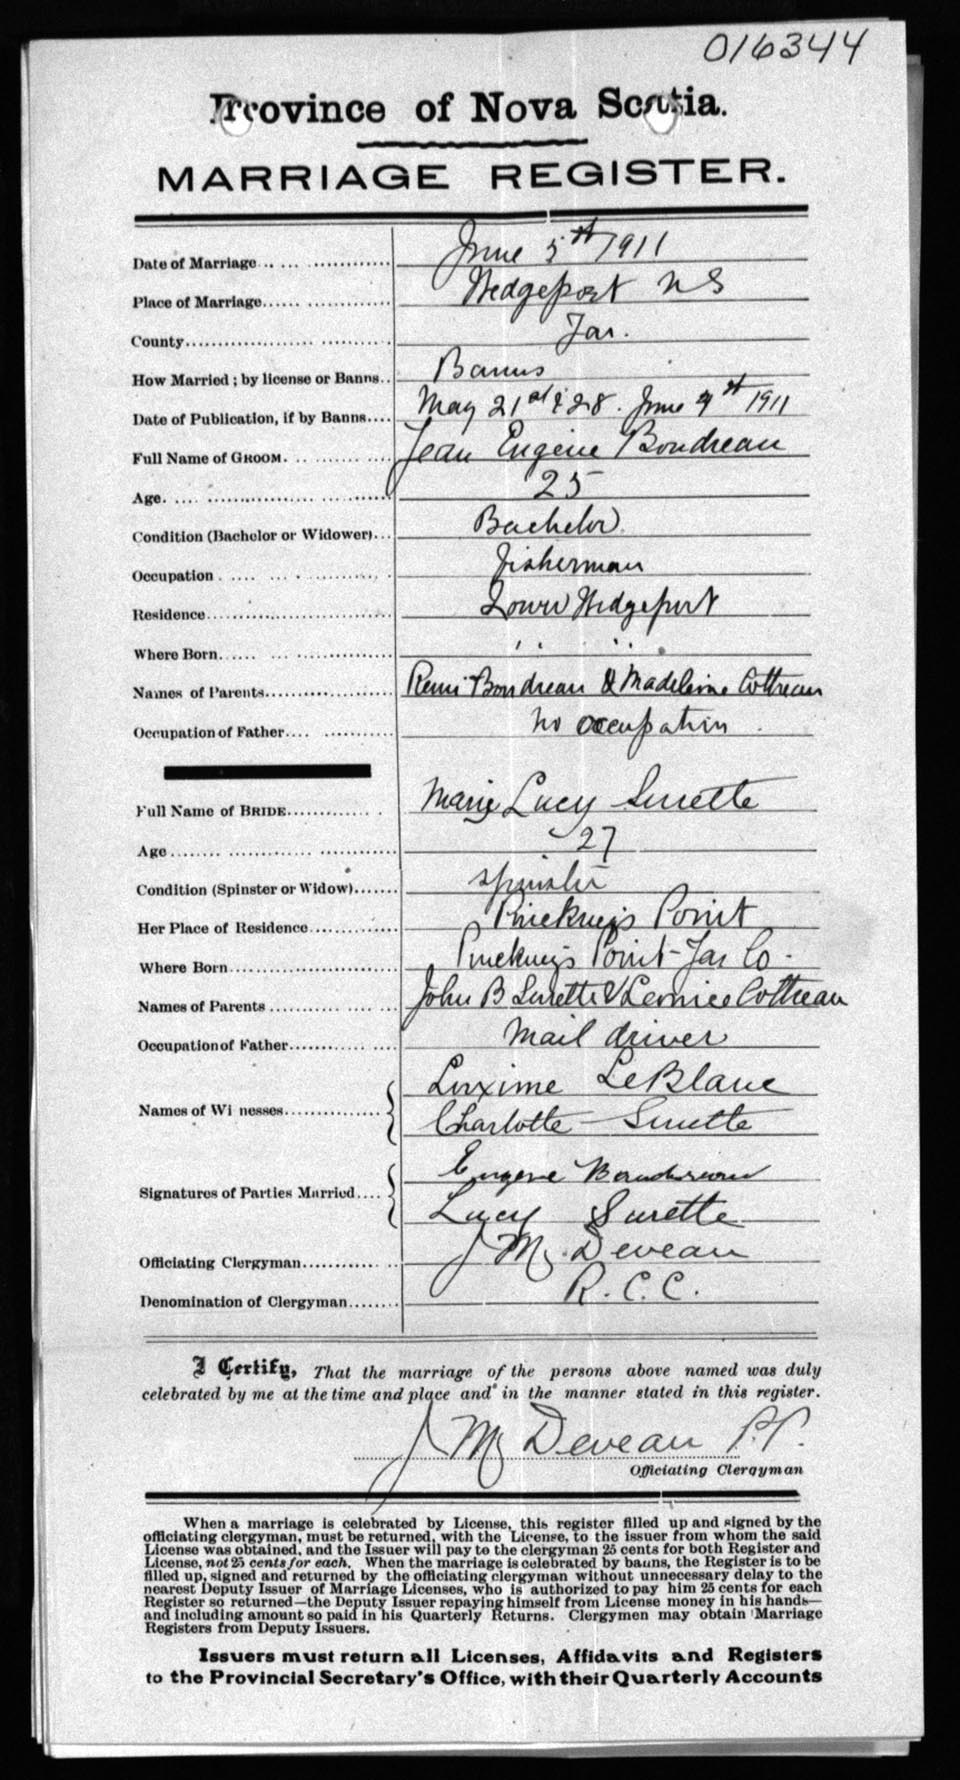 016344
Province of Nova Scotia.
MARRIAGE REGISTER.
Date of Marriage June 5th 1911
Place of Marriage Wedgeport NS
County Yar.
How Married; by license or Banns Banns
Date of Publication, if by Banns May 21st & 28. June 4th 1911
Full Name of GROOM Jean Eugène Boudreau
Age 25
Condition (Bachelor or Widower) Bachelor
Occupation Fisherman
Residence Lower Wedgeport
Where Born " "
Names of Parents Remi Boudreau & Madeleine Cottreau
Occupation of Father no occupation
Full Name of BRIDE Marie Lucy Surette
Age 27
Condition (Spinster or Widow) spinster
Her Place of Residence Pinckney's Point
Where Born Pinckney's Point - Yar Co -
Names of Parents John B Surette & Leonice Cottreau
Occupation of Father Mail driver
Names of Wi nesses Luxime LeBlanc
Charlotte Surette
Signatures of Parties Married Eugene Boudreau
Lucy Surette
Officiating Clergyman J M Deveau
Denomination of Clergyman R.C.C.
I Certify, That the marriage of the persons above named was duly
celebrated by me at the time and place and in the manner stated in this register.
J M Deveau P.P.
Officiating Clergyman
When a marriage is celebrated by License, this register filled up and signed by the
officiating clergyman, must be returned, with the License, to the issuer from whom the said
License was obtained, and the Issuer will pay to the clergyman 25 cents for both Register and
License, not 25 cents for each. When the marriage is celebrated by banns, the Register is to be
filled up, signed and returned by the officiating clergyman without unnecessary delay to the
nearest Deputy Issuer of Marriage Licenses, who is authorized to pay him 25 cents for each
Register so returned—the Deputy Issuer repaying himself from License money in his hands—
and including amount so paid in his Quarterly Returns. Clergymen may obtain Marriage
Registers from Deputy Issuers.
Issuers must return all Licenses, Affidavits and Registers
to the Provincial Secretary's Office, with their Quarterly Accounts